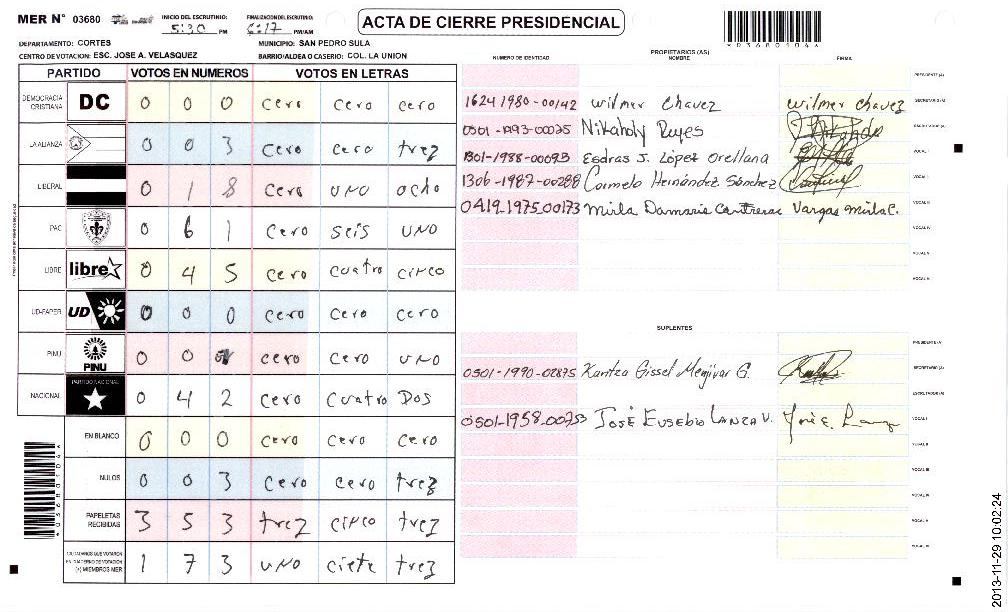 MER N° 03680 INICIO DEL ESCRUTINIO: 5:30 PM FINALIZACION DEL ESCRUTINIO: 6:17 PM/AM
ACTA DE CIERRE PRESIDENCIAL
*03680104*
DEPARTAMENTO: CORTES MUNICIPIO: SAN PEDRO SULA
CENTRO DE VOTACION: ESC. JOSE A. VELASQUEZ BARRIO/ALDEA O CASERIO: COL. LA UNION
PARTIDO VOTOS EN NUMEROS VOTOS EN LETRAS
DEMOCRACIA CRISTIANA DC 0 0 0 cero cero cero
LA ALIANZA 0 0 3 cero cero trez
LIBERAL 0 1 8 cero uno ocho
PAC 0 6 1 cero seis uno
LIBRE libre 0 4 5 cero cuatro cinco
UD-FAPER UD 0 0 0 cero cero cero
PINU PINU 0 0 1 cero cero uno
NACIONAL PARTIDO NACIONAL 0 4 2 cero cuatro Dos
EN BLANCO 0 0 0 cero cero cero
NULOS 0 0 3 cero cero trez
PAPELETAS RECIBIDAS 3 5 3 trez cinco trez
CIUDADANOS QUE VOTARON EN CUADERNO DE VOTACION (+) MIEMBROS MER 1 7 3 uno ciete trez
PROPIETARIOS (AS)
NUMERO DE IDENTIDAD NOMBRE FIRMA
PRESIDENTE (A)
1624 1980-00142 Wilmer Chavez Wilmer Chavez SECRETARIO (A)
0501-1993-00025 Nikaholy Reyes ESCRUTADOR (A)
1801-1988-00093 Esdras J. López Orellana VOCAL I
1306-1987-00288 Carmelo Hernández Sánchez VOCAL II
0419-1975-00173 Mirla Damaris Contreras Vargas Mirla C. VOCAL III
VOCAL IV
VOCAL V
VOCAL VI
SUPLENTES
PRESIDENTE (A)
0501-1990-02875 Karitza Gissel Menjivar G. SECRETARIO (A)
ESCRUTADOR (A)
0501-1958-00753 José Eusebio Lanza V. VOCAL I
VOCAL II
VOCAL III
VOCAL IV
VOCAL V
VOCAL VI
2013-11-29 10:02:24